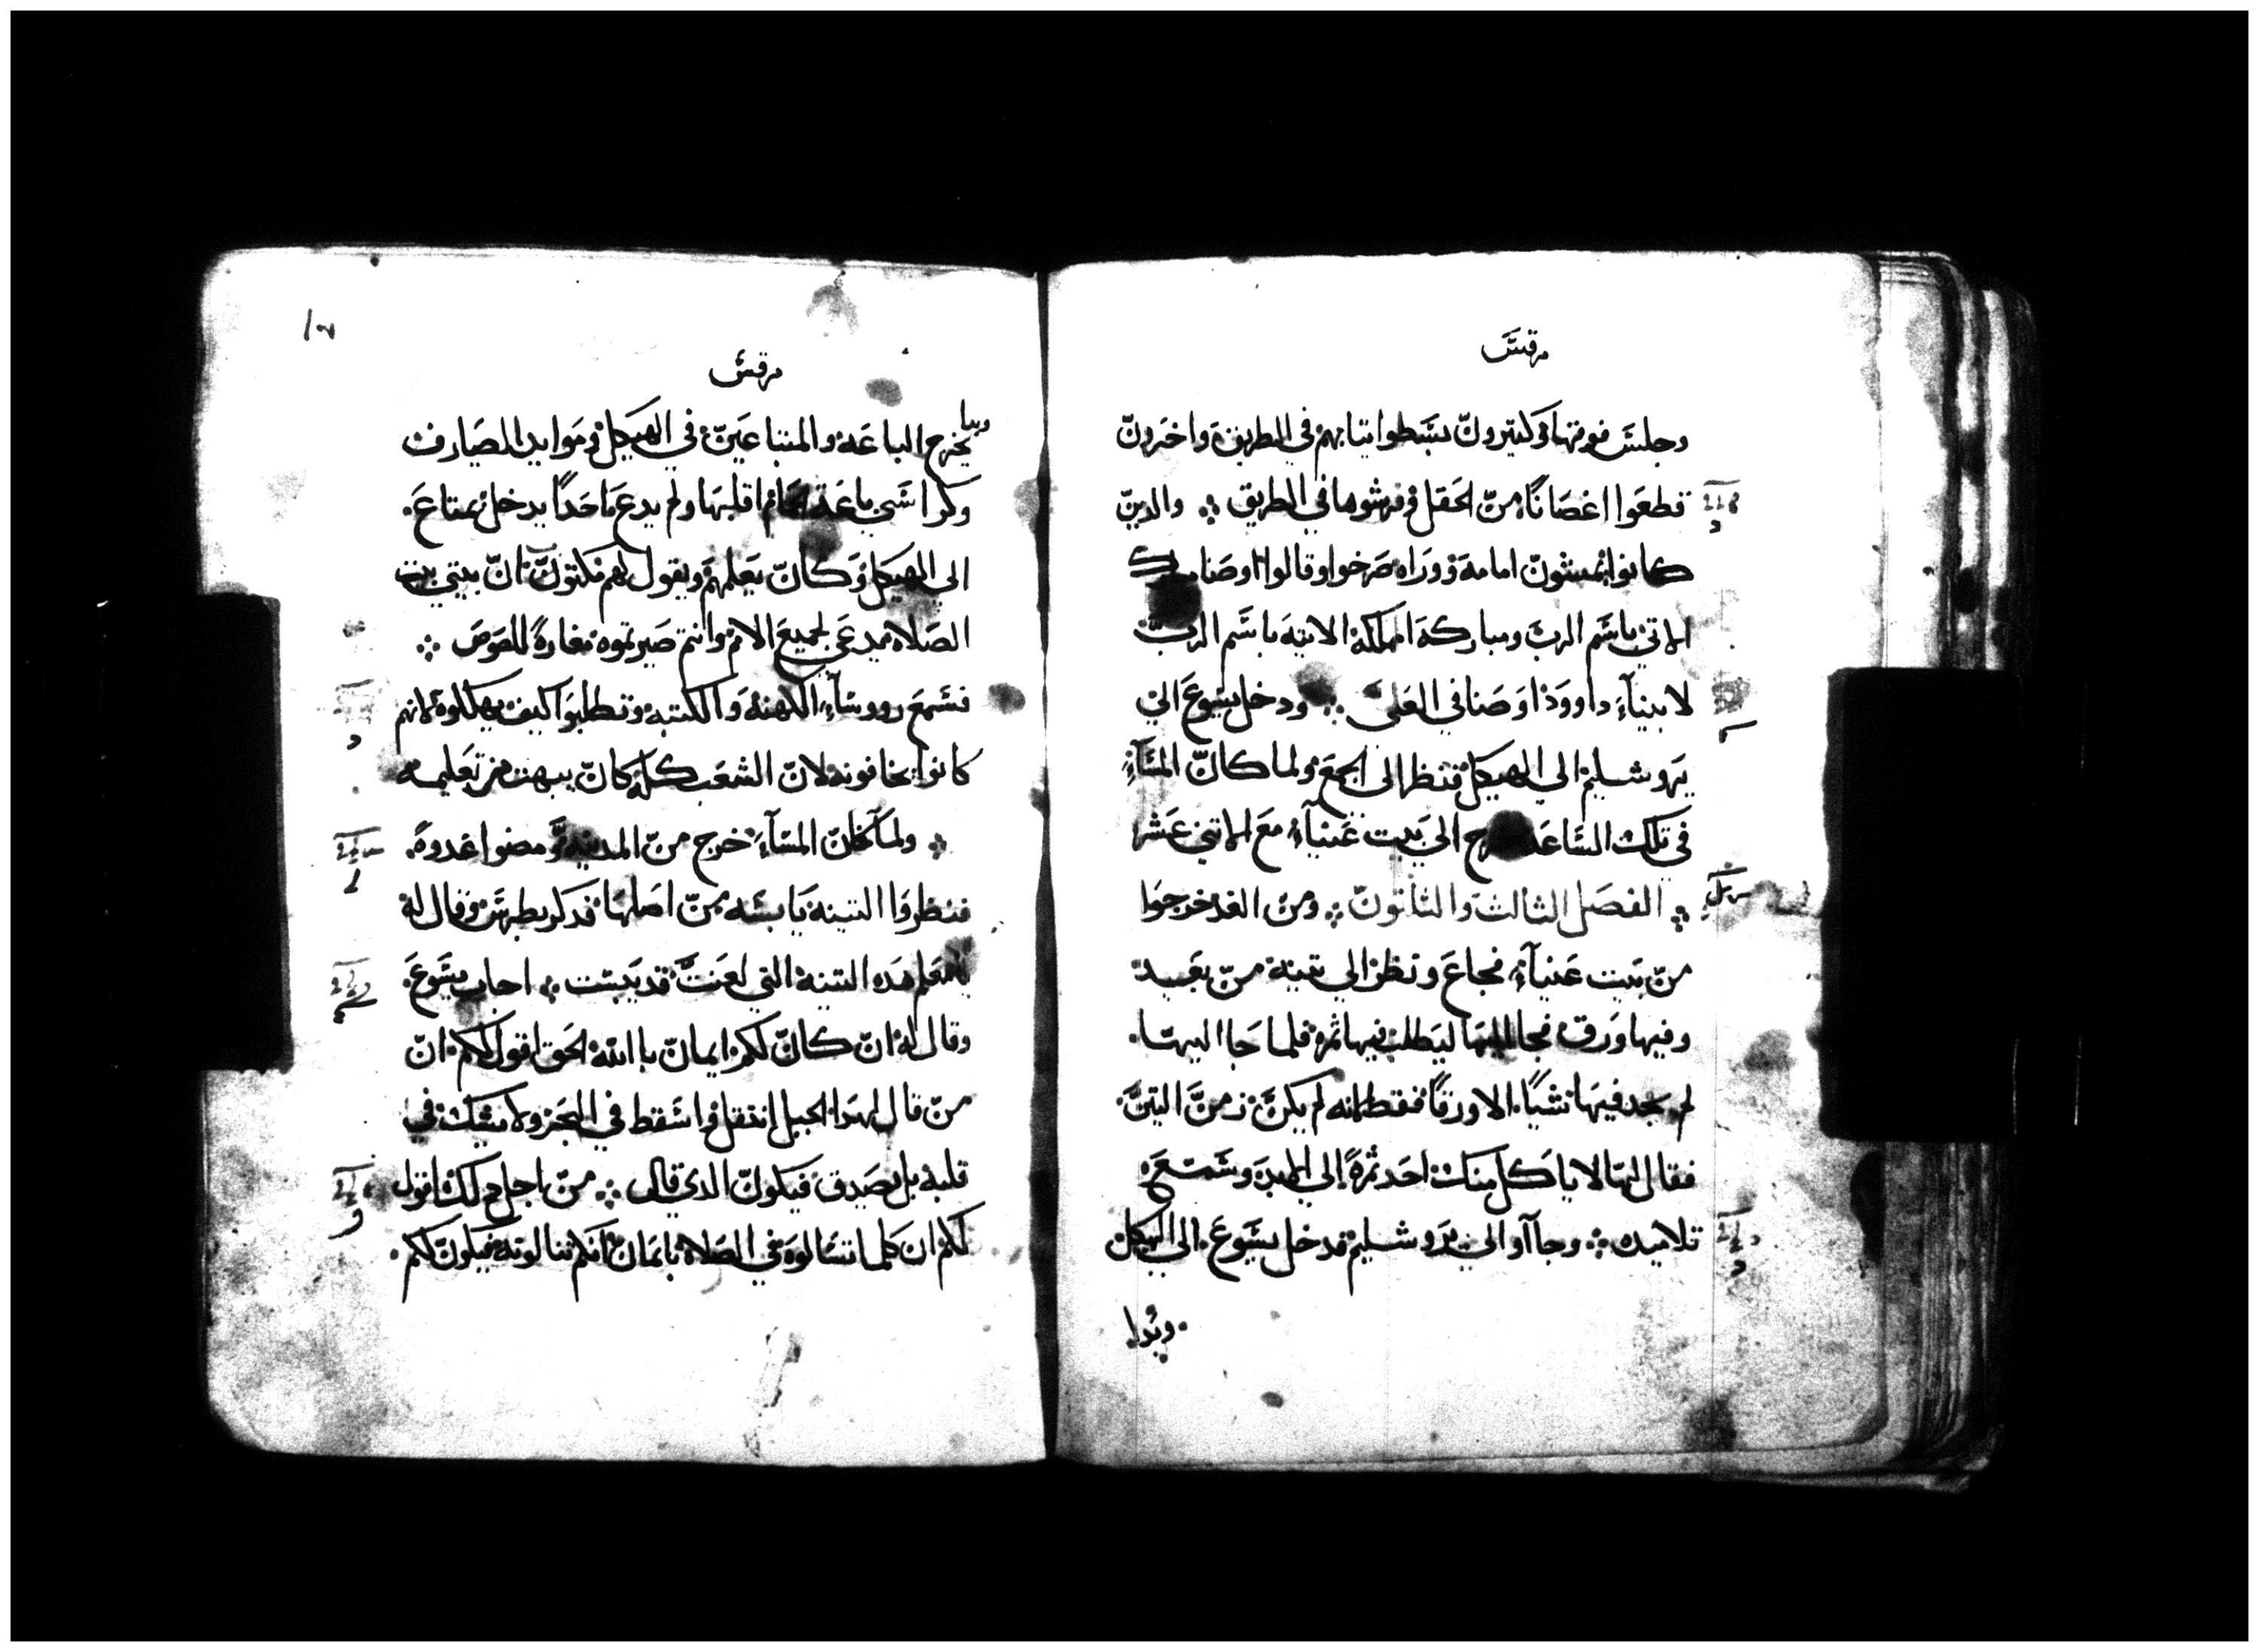 مرقس
وجلس فوقها وكتيرون بسطوا تيابهم في الطريق واخرون
قطعوا اغصانا من الحقل وفرشوها في الطريق ⁘ والدين
كانوا يمشون امامه ووراه صرخوا وقالوا اوصنا
الاتي باسم الرب ومباركة المملكة الاتيه باسم الرب
لابيناء داوود اوصنا في العلى ⁘ ودخل يسوع الي
يروشليم الي الهيكل فنظر الى الجمع ولما كان المساء
في تلك الساعه الي بيت عنياء مع الاتني عشر
⁘ الفصل الثالث والثلثون ⁘ ومن الغد خرجوا
من بيت عنياء فجاع ونظر الي تينة من بعيد
وفيها ورق فجا اليها ليطلب فيها ثمره فلما جا اليها
لم يجد فيها شيا الا ورقا فقط لانه لم يكن زمن التين
فقال لها لا ياكل منك احد ثمرة الي الابد وسمع
تلاميده ⁘ وجاآو الي يروشليم فدخل يسوع الي الهيكل
وبدا
مرقس
وبدا
يخرج الباعة والمبتاعين في الهيكل وموايد الصيارف
وكراسي باعة الحمام اقلبها ولم يدع احدا يدخل بمتاع
الى الهيكل وكان يعلمهم ويقول لهم مكتوب ان بيتي بيت
الصلاه يدعى لجميع الامم وانتم صيرتموه مغارة للصوص ⁘
فسمع رووساء الكهنه والكتبه وتطلبوا كيف يهلكوه لانهم
كانوا يخافونه لان الشعب كله كان يبهت من تعليمه
⁘ ولما كان المساء خرج من المدينه ومضوا غدوة
فنظروا التينة يابسه من اصلها فدكر بطرس وقال له
يامعلم هده التينة التي لعنت قد يبست ⁘ اجاب يسوع
وقال له ان كان لكم ايمان باالله الحق اقول لكم ان
من قال لهدا الجبل انتقل واسقط في البحر ولا يشك في
قلبه بل يصدق فيكون الدي قال ⁘ من اجل دلك اقول
لكم ان كلما تسالوه في الصلاه بايمان انكم تنالونه فيكون لكم